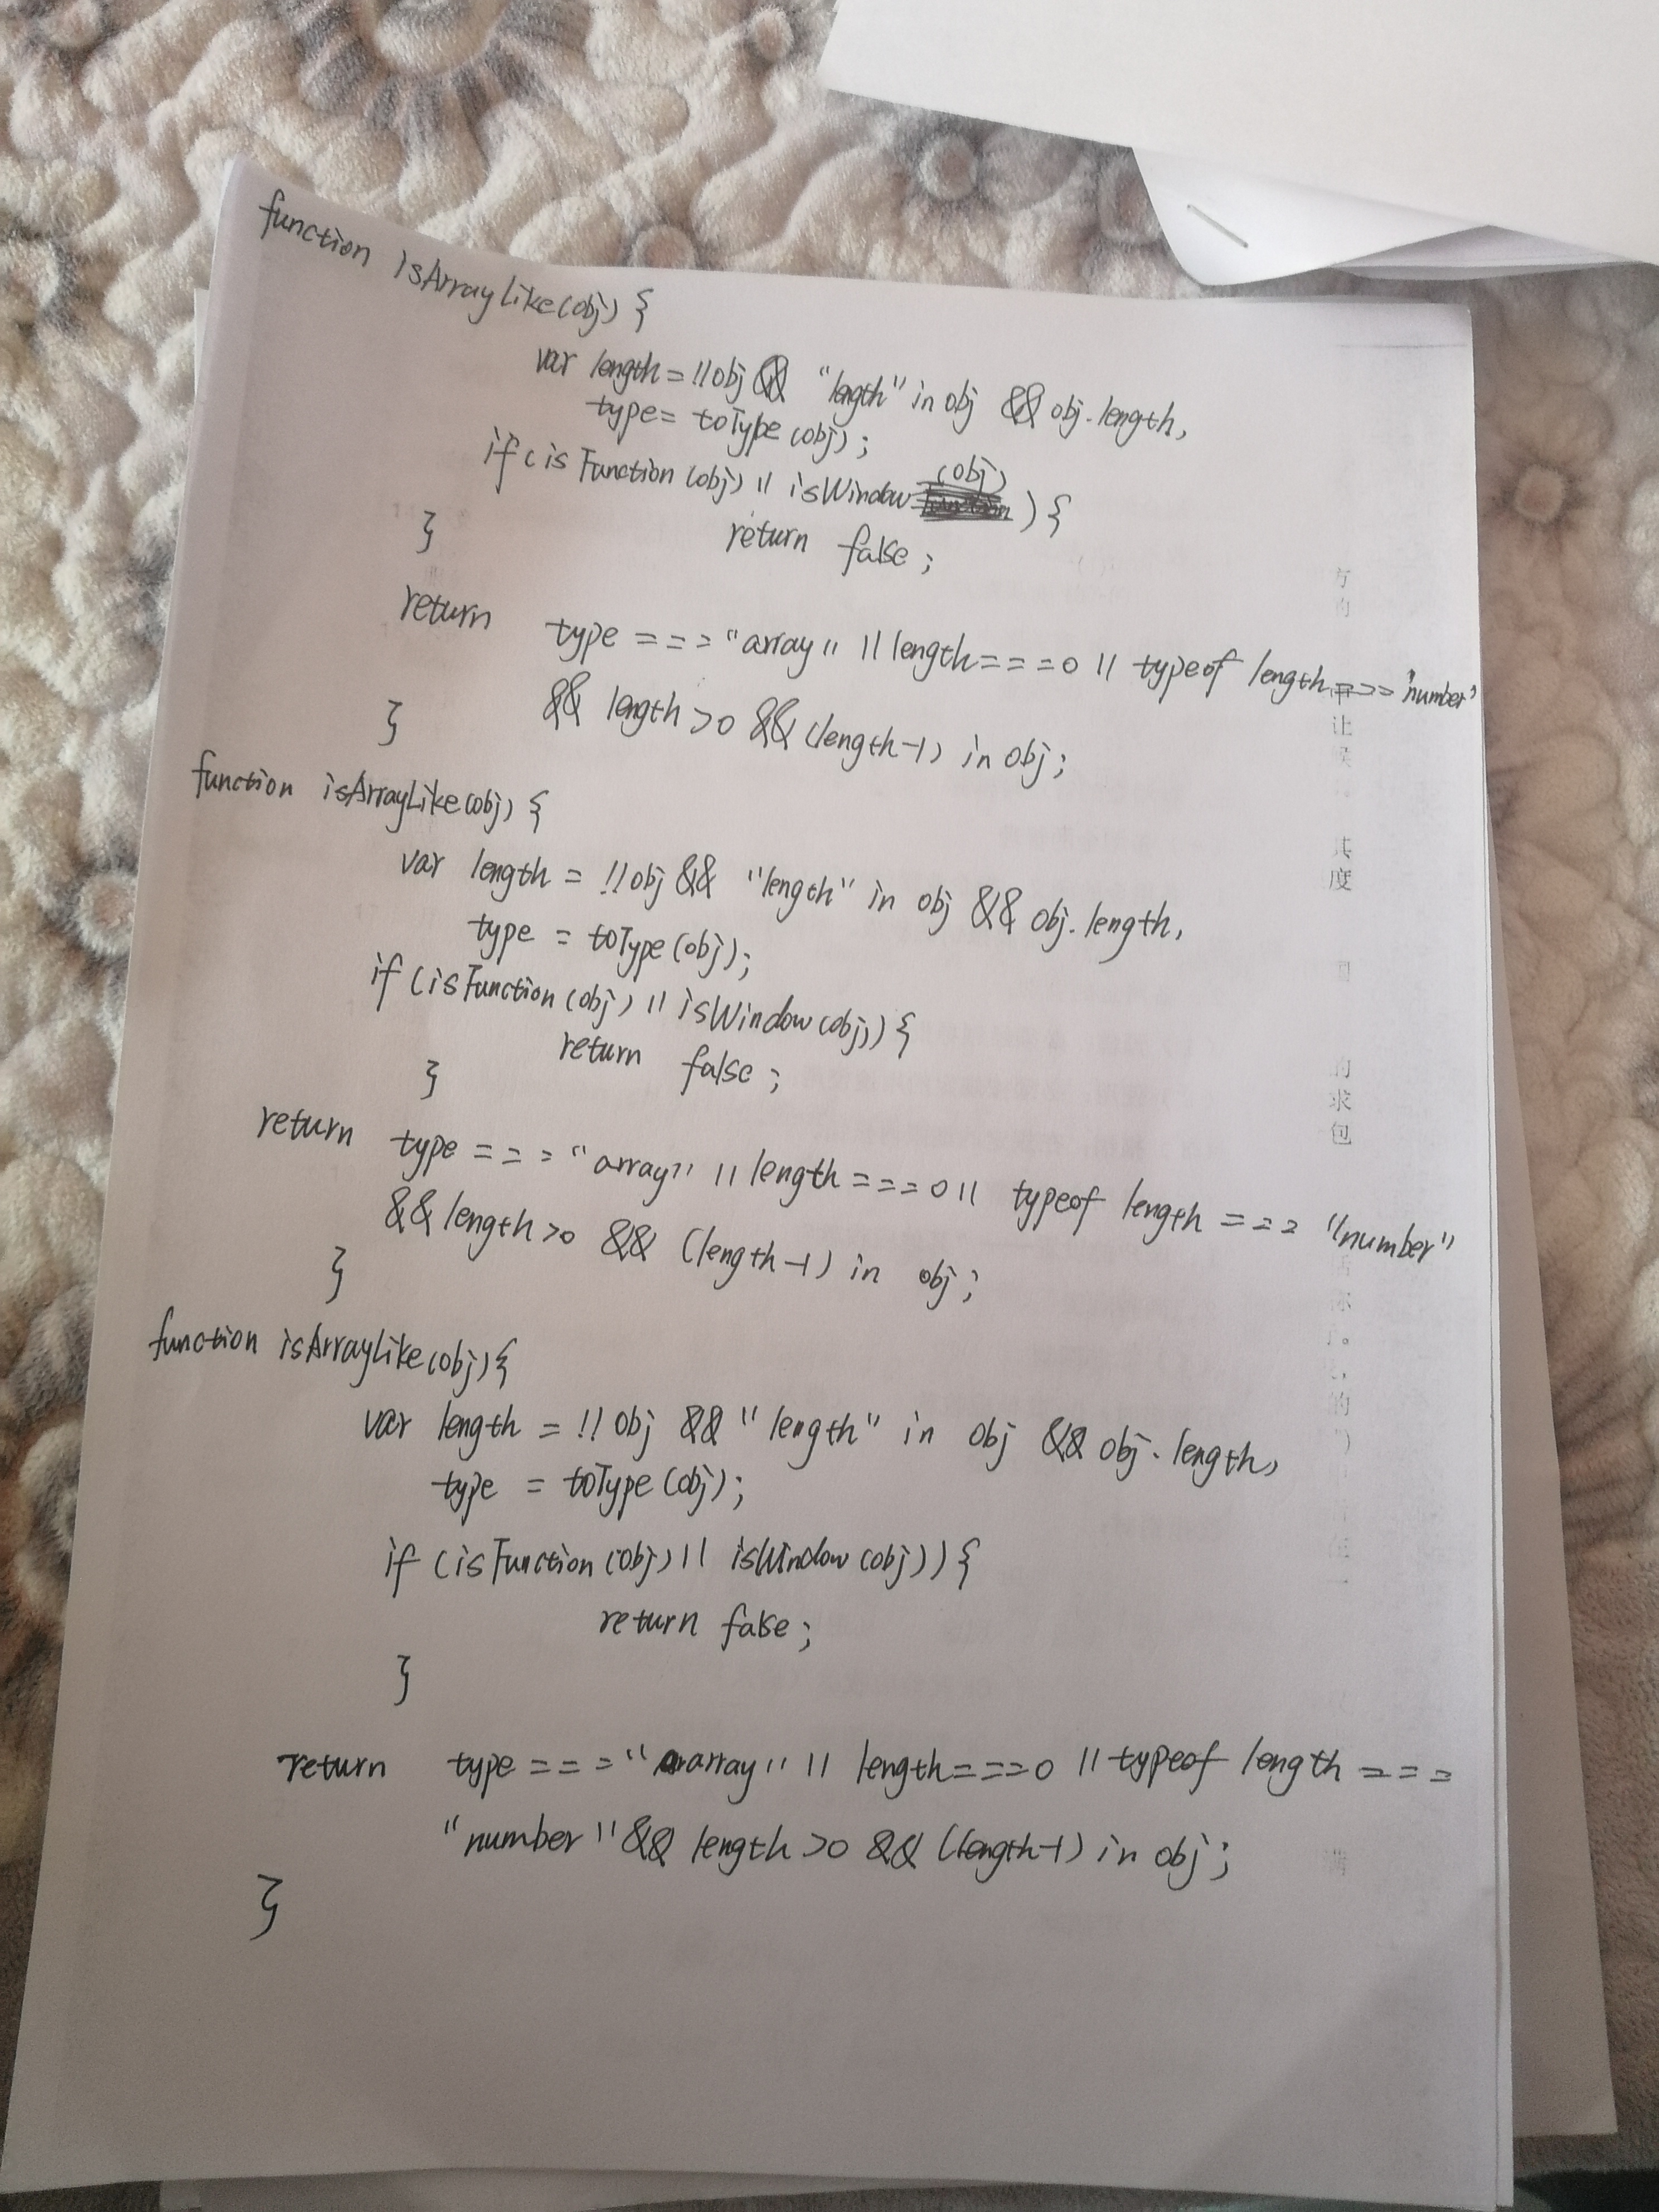 function isArrayLike(obj) {
var length = !!obj && "length" in obj && obj.length,
type = toType(obj);
if (isFunction(obj) || isWindow(obj)) {
return false;
}
return type === "array" || length === 0 || typeof length === "number"
&& length > 0 && (length-1) in obj;
}
function isArrayLike(obj) {
var length = !!obj && "length" in obj && obj.length,
type = toType(obj);
if (isFunction(obj) || isWindow(obj)) {
return false;
}
return type === "array" || length === 0 || typeof length === "number"
&& length > 0 && (length-1) in obj;
}
function isArrayLike(obj) {
var length = !!obj && "length" in obj && obj.length,
type = toType(obj);
if (isFunction(obj) || isWindow(obj)) {
return false;
}
return type === "array" || length === 0 || typeof length ===
"number" && length > 0 && (length-1) in obj;
}
方
的
让
其
度
的
求
包
的